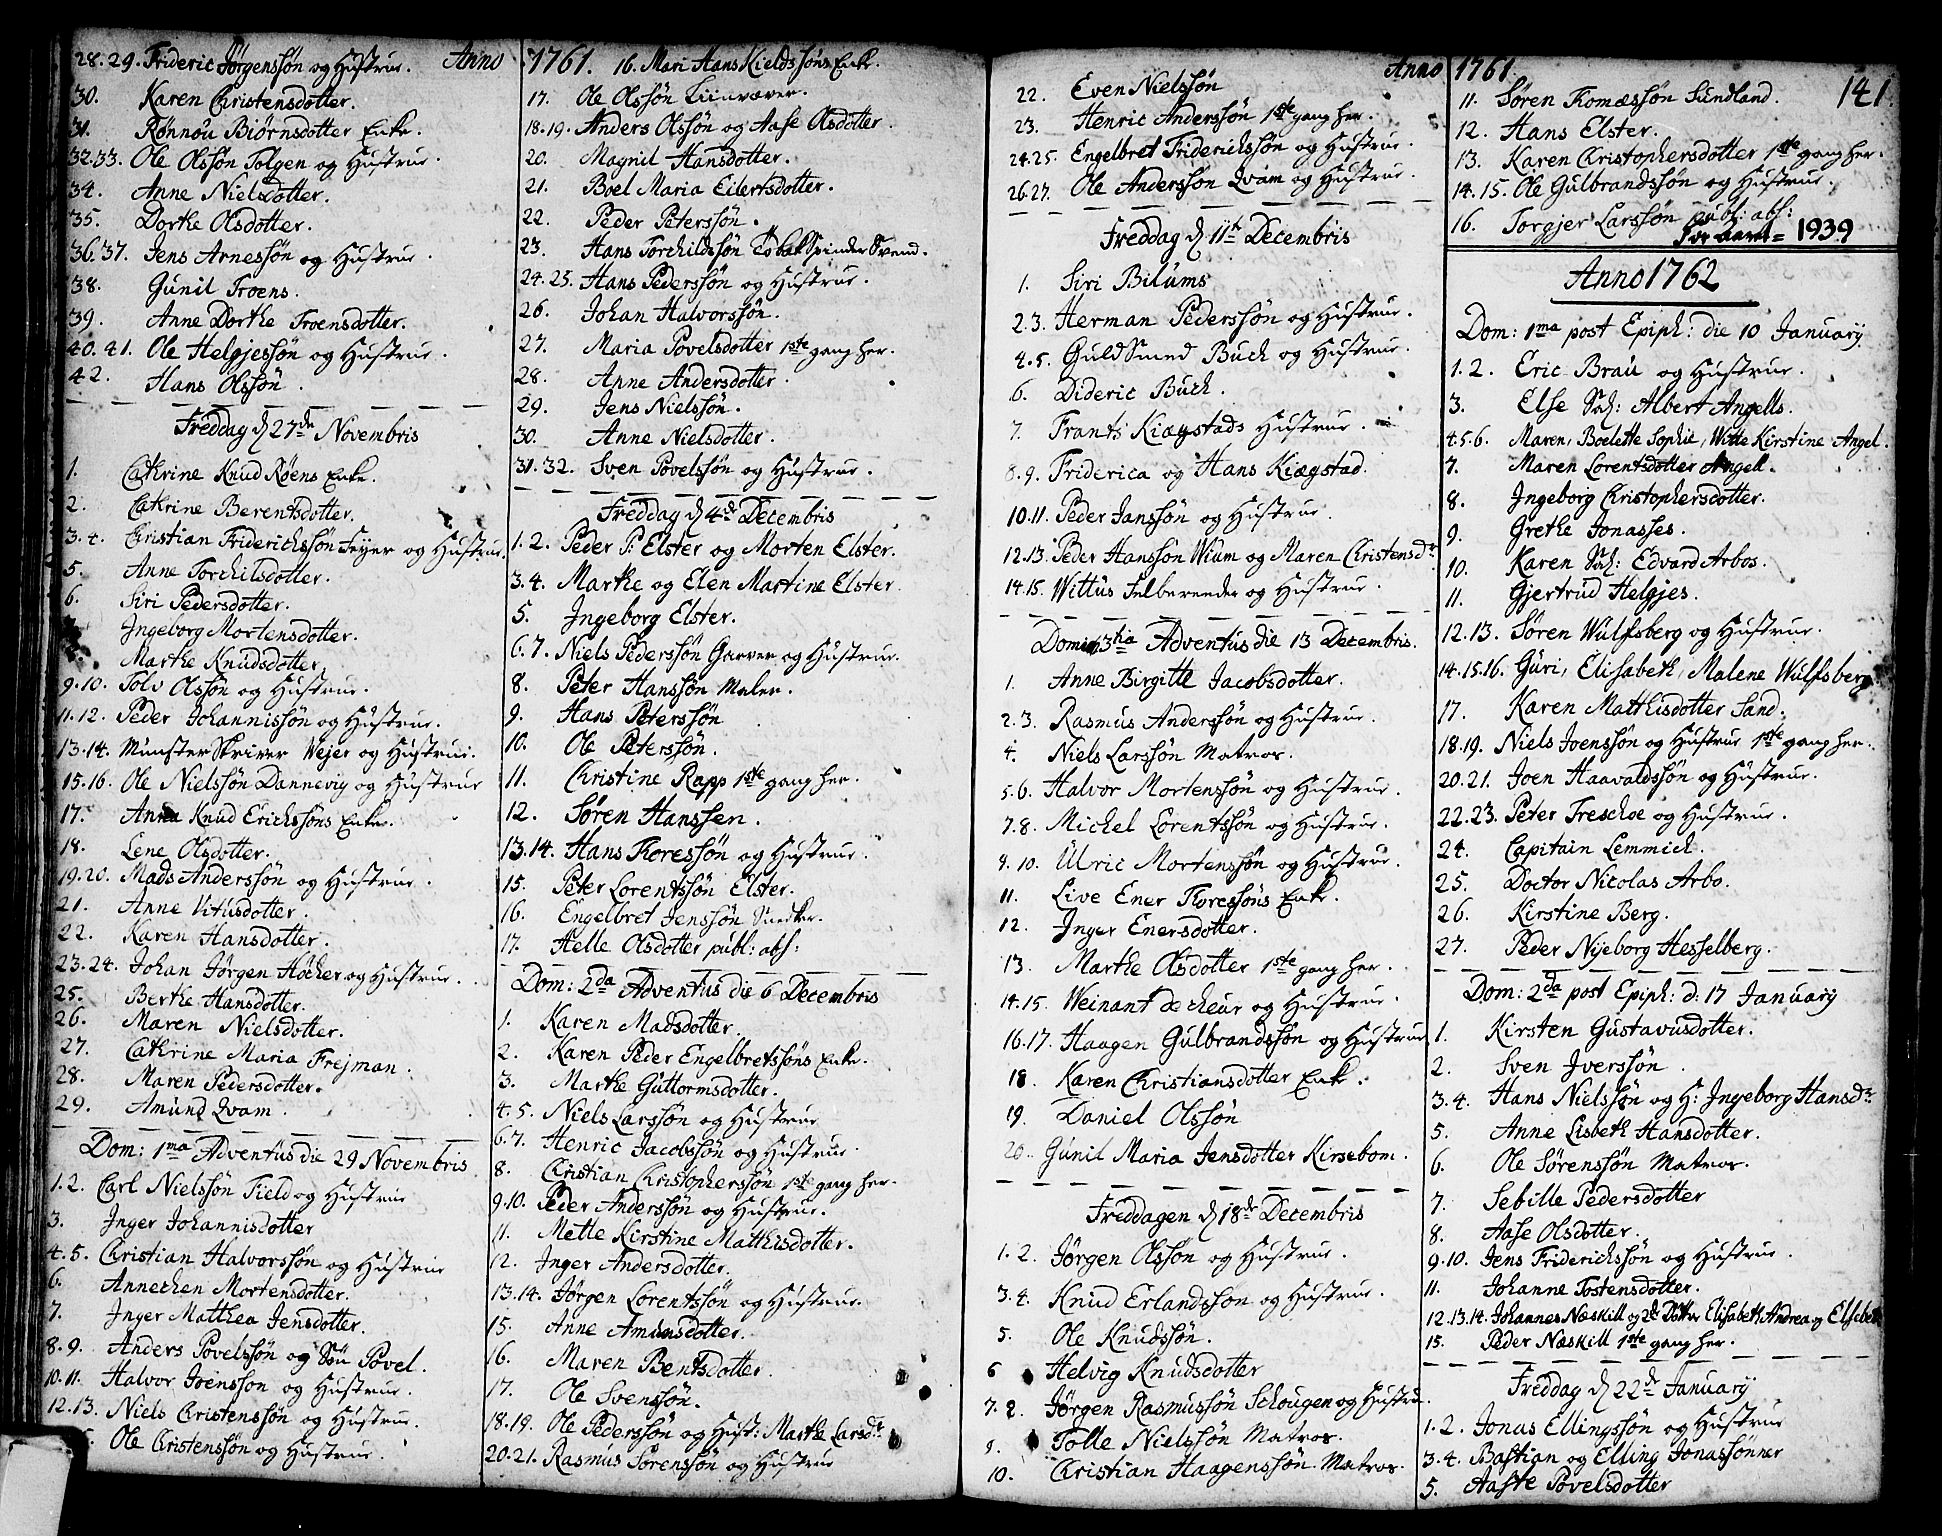 Anno 1761.
28.29. Frideric Jørgenssøn og Hustrue.
30. Karen Christensdotter.
31. Rønnou Biørnsdotter Enke.
32.33. Ole Olssøn Tolgen og Hustrue.
34. Anne Nielsdotter.
35. Dorthe Olsdotter.
36.37. Jens Arnessøn og Hustrue.
38. Gunil Troens.
39. Anne Dorthe Troensdotter.
40.41. Ole Helgjessøn og Hustrue.
42. Hans Olssøn.
Freddag d 27de Novembris
1. Cathrine Knud Røens Enke.
2. Cathrine Berentsdotter.
3.4. Christian Friderichssøn Feyer og Hustrue.
5. Anne Torchilsdotter.
6. Siri Pedersdotter.
Ingeborg Mortensdotter.
Marthe Knudsdotter
9.10. Tolv Olssøn og Hustrue.
11.12. Peder Johannissøn og Hustrue.
13.14. Münster Skriver Wejer og Hustrue.
15.16. Ole Nielssøn Dannevig og Hustrue
17. Anna Knud Erichssøns Enke.
18. Lene Olsdotter.
19.20. Mads Anderssøn og Hustrue.
21. Anne Vitusdotter.
22. Karen Hansdotter.
23.24. Johan Jørgen Høcker og Hustrue.
25. Berthe Hansdotter.
26. Maren Nielsdotter.
27. Cathrine Maria Frejman.
28. Maren Pedersdotter.
29. Amund Qvam.
Dom: 1ma Adventus die 29 Novembris
1.2. Carl Nielssøn Field og Hustrue
3. Inger Johannisdotter
4.5. Christian Halvorssøn og Hustrue
6. Annechen Mortensdotter.
7. Inger Mathea Jensdotter.
8.9. Anders Povelssøn og Søn Povel.
10.11. Halvor Joenssøn og Hustrue.
12.13. Niels Christenssøn og Hustrue.
Ole Christenssøn og Hustrue.
16. Mari Hans Kieldssøns Enke.
17. Ole Olssøn Liinvæver.
18.19. Anders Olssøn og Aase Olsdotter.
20. Magnil Hansdotter.
21. Boel Maria Eilertsdotter.
22. Peder Peterssøn.
23. Hans Torchildssøn Tobak Spinder Svend.
24.25. Hans Pederssøn og Hustrue.
26. Johan Halvorssøn.
27. Maria Povelsdotter 1ste gang her.
28. Anne Andersdotter.
29. Jens Nielssøn.
30. Anne Nielsdotter.
31.32. Sven Povelssøn og Hustrue.
Freddag d 4de Decembris
1.2. Peder P: Elster og Morten Elster.
3.4. Marthe og Elen Martine Elster
5. Ingeborg Elster.
6.7. Niels Pederssøn Garver og Hustrue.
8. Peter Hanssøn Maler.
9. Hans Peterssøn
10. Ole Peterssøn.
11. Christine Rapp 1ste gang her.
12. Søren Hanssen.
13.14. Hans Thoressøn og Hustrue.
15. Peter Lorentssøn Elster.
16. Engelbret Jenssøn Snedker.
17. Helle Olsdotter publ: abs:
Dom: 2da Adventus die 6 Decembris
1. Karen Madsdotter.
2. Karen Peder Engelbretssøns Enke.
3. Marthe Guttormsdotter.
4.5. Niels Larssøn og Hustrue
6.7. Henric Jacobssøn og Hustrue.
8. Christian Christopherssøn 1ste gang her.
9.10. Peder Anderssøn og Hustrue.
11. Mette Kirstine Mathisdotter.
12. Inger Andersdotter.
13.14. Jørgen Lorentssøn og Hustrue.
15. Anne Amunsdotter.
16. Maren Bentsdotter.
17. Ole Svenssøn.
18.19. Ole Pederssøn og Hust: Marthe Larsdtr
20.21. Rasmus Sørenssøn og Hustrue
Anno 1761
141.
22. Even Nielssøn
23. Henric Anderssøn 1ste gang her.
24.25. Engelbret Friderichssøn og Hustrue.
26.27. Ole Anderssøn Qvam og Hustrue.
Freddag d 11te Decembris
1. Siri Bilums
2.3. Herman Pederssøn og Hustrue.
4.5. Guld Smed Buch og Hustrue.
6. Dideric Buch.
7. Frants Kiægstads Hustrue.
8.9. Friderica og Hans Kiægstad.
10.11. Peder Janssøn og Hustrue.
12.13. Peder Hanssøn Wium og Maren Christensdtr
14.15. Wittus Felbereder og Hustrue.
Domin: 3tia Adventus die 13 Decembris.
1. Anne Birgitte Jacobsdotter.
2.3. Rasmus Anderssøn og Hustrue.
4. Niels Larssøn Matros.
5.6. Halvor Mortenssøn og Hustrue.
7.8. Michel Lorentssøn og Hustrue.
9.10. Ulric Mortenssøn og Hustrue.
11. Live Ener Thoressøns Enke.
12. Inger Enersdotter.
13. Marthe Olsdotter 1ste gang her.
14.15. Weinant de cheur og Hustrue.
16.17. Haagen Gulbrandssøn og Hustrue
18. Karen Christiansdotter Enke.
19. Daniel Olssøn
20. Gunil Maria Jensdotter Kirsebom.
Freddagen d 18de Decembris
1.2. Jørgen Olssøn og Hustrue.
3.4. Knud Erlandssøn og Hustrue.
5. Ole Knudssøn.
6 Helvig Knudsdotter
7.8. Jørgen Rasmussøn Schougen og Hustrue.
9. Tolle Nielssøn Matros.
10. Christian Haagenssøn Matros.
11. Søren Thomæssøn Sundland.
12. Hans Elster.
13. Karen Christophersdotter 1ste gang her.
14.15. Ole Gulbrandssøn og Hustrue.
16. Torgjer Larssøn publ: abs:
For aaret = 1939
Anno 1762
Dom: 1ma post Epiph: die 10 January
1.2. Eric Brau og Hustrue.
3. Else Sal: Albert Angells.
4.5.6. Maren, Boelette Sophie, Witte Kirstine Angel.
7. Maren Lorentsdotter Angell.
8. Ingeborg Christophersdotter.
9. Grethe Jonasses.
10. Karen Sal: Edvard Arbos.
11. Gjertrud Helgjes.
12.13. Søren Wulfsberg og Hustrue.
14.15.16. Guri, Elisabeth, Malene Wulfsberg
17. Karen Matthisdotter Sand.
18.19. Niels Joenssøn og Hustrue 1ste gang her.
20.21. Joen Haavaldssøn og Hustrue.
22.23. Peter Treschoe og Hustrue.
24. Capitain Lemmich.
25. Doctor Nicolas Arbo.
26. Kirstine Berg.
27. Peder Nyeborg Hesselberg.
Dom: 2da post Epiph: d: 17 January
1. Kirsten Gustavusdotter.
2. Sven Iverssøn.
3.4. Hans Nielssøn og H: Ingeborg Hansdtr
5. Anne Lisbeth Hansdotter.
6. Ole Sørenssøn Matros.
7. Sebille Pedersdotter
8. Aase Olsdotter.
9.10. Jens Friderichssøn og Hustrue.
11. Johanne Tostensdotter.
12.13.14. Johannes Næskill og 2de Døttre Elisabeth Andrea og Elsebeth
15. Peder Næskill 1ste gang her.
Freddag d 22de January
1.2. Jonas Ellingssøn og Hustrue
3.4. Bastian og Elling Jonassønner
5. Aaste Povelsdotter